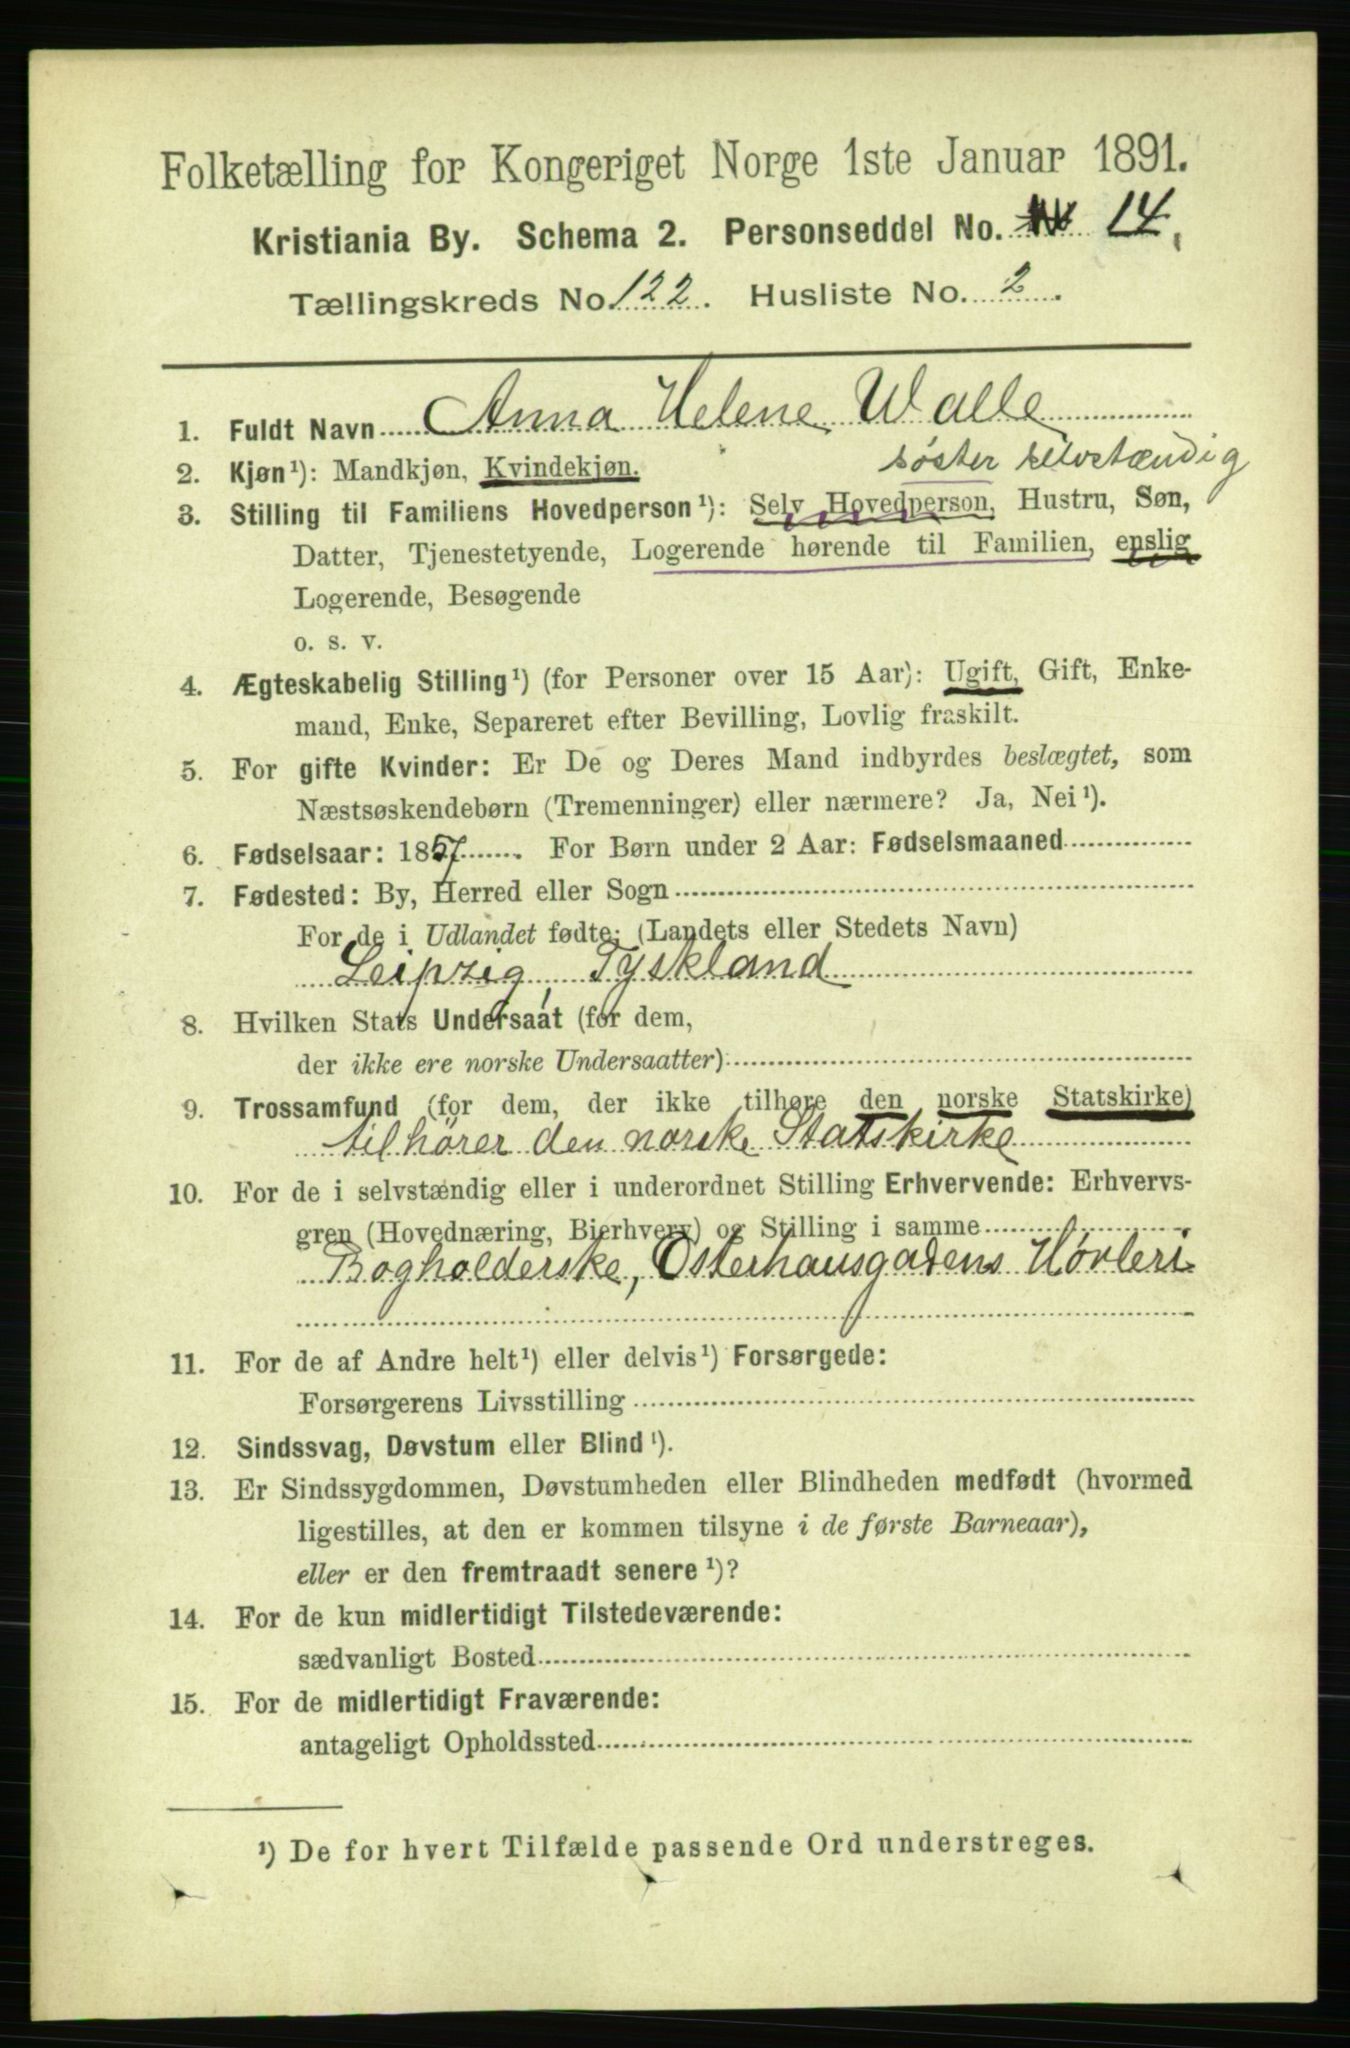 Folketælling for Kongeriget Norge 1ste Januar 1891.
Kristiania By. Schema 2. Personseddel No. 14,
Tællingskreds No. 122. Husliste No. 2.
1. Fuldt Navn Anna Helene Walle
søster selvstændig
2. Kjøn¹): Mandkjøn, Kvindekjøn.
3. Stilling til Familiens Hovedperson¹): Selv Hovedperson, Hustru, Søn,
Datter, Tjenestetyende, Logerende hørende til Familien, enslig
Logerende, Besøgende
o. s. v.
4. Ægteskabelig Stilling¹) (for Personer over 15 Aar): Ugift, Gift, Enke-
mand, Enke, Separeret efter Bevilling, Lovlig fraskilt.
5. For gifte Kvinder: Er De og Deres Mand indbyrdes beslægtet, som
Næstsøskendebørn (Tremenninger) eller nærmere? Ja, Nei¹).
6. Fødselsaar: 1857. For Børn under 2 Aar: Fødselsmaaned
7. Fødested: By, Herred eller Sogn
For de i Udlandet fødte: (Landets eller Stedets Navn)
Leipzig, Tyskland
8. Hvilken Stats Undersaat (for dem,
der ikke ere norske Undersaatter):
9. Trossamfund (for dem, der ikke tilhøre den norske Statskirke)
tilhører den norske Statskirke
10. For de i selvstændig eller i underordnet Stilling Erhvervende: Erhvervs-
gren (Hovednæring, Bierhverv) og Stilling i samme
Bogholderske, Osterhausgadens Høvleri
11. For de af Andre helt¹) eller delvis¹) Forsørgede:
Forsørgerens Livsstilling
12. Sindssvag, Døvstum eller Blind¹).
13. Er Sindssygdommen, Døvstumheden eller Blindheden medfødt (hvormed
ligestilles, at den er kommen tilsyne i de første Barneaar),
eller er den fremtraadt senere¹)?
14. For de kun midlertidigt Tilstedeværende:
sædvanligt Bosted
15. For de midlertidigt Fraværende:
antageligt Opholdssted
¹) De for hvert Tilfælde passende Ord understreges.